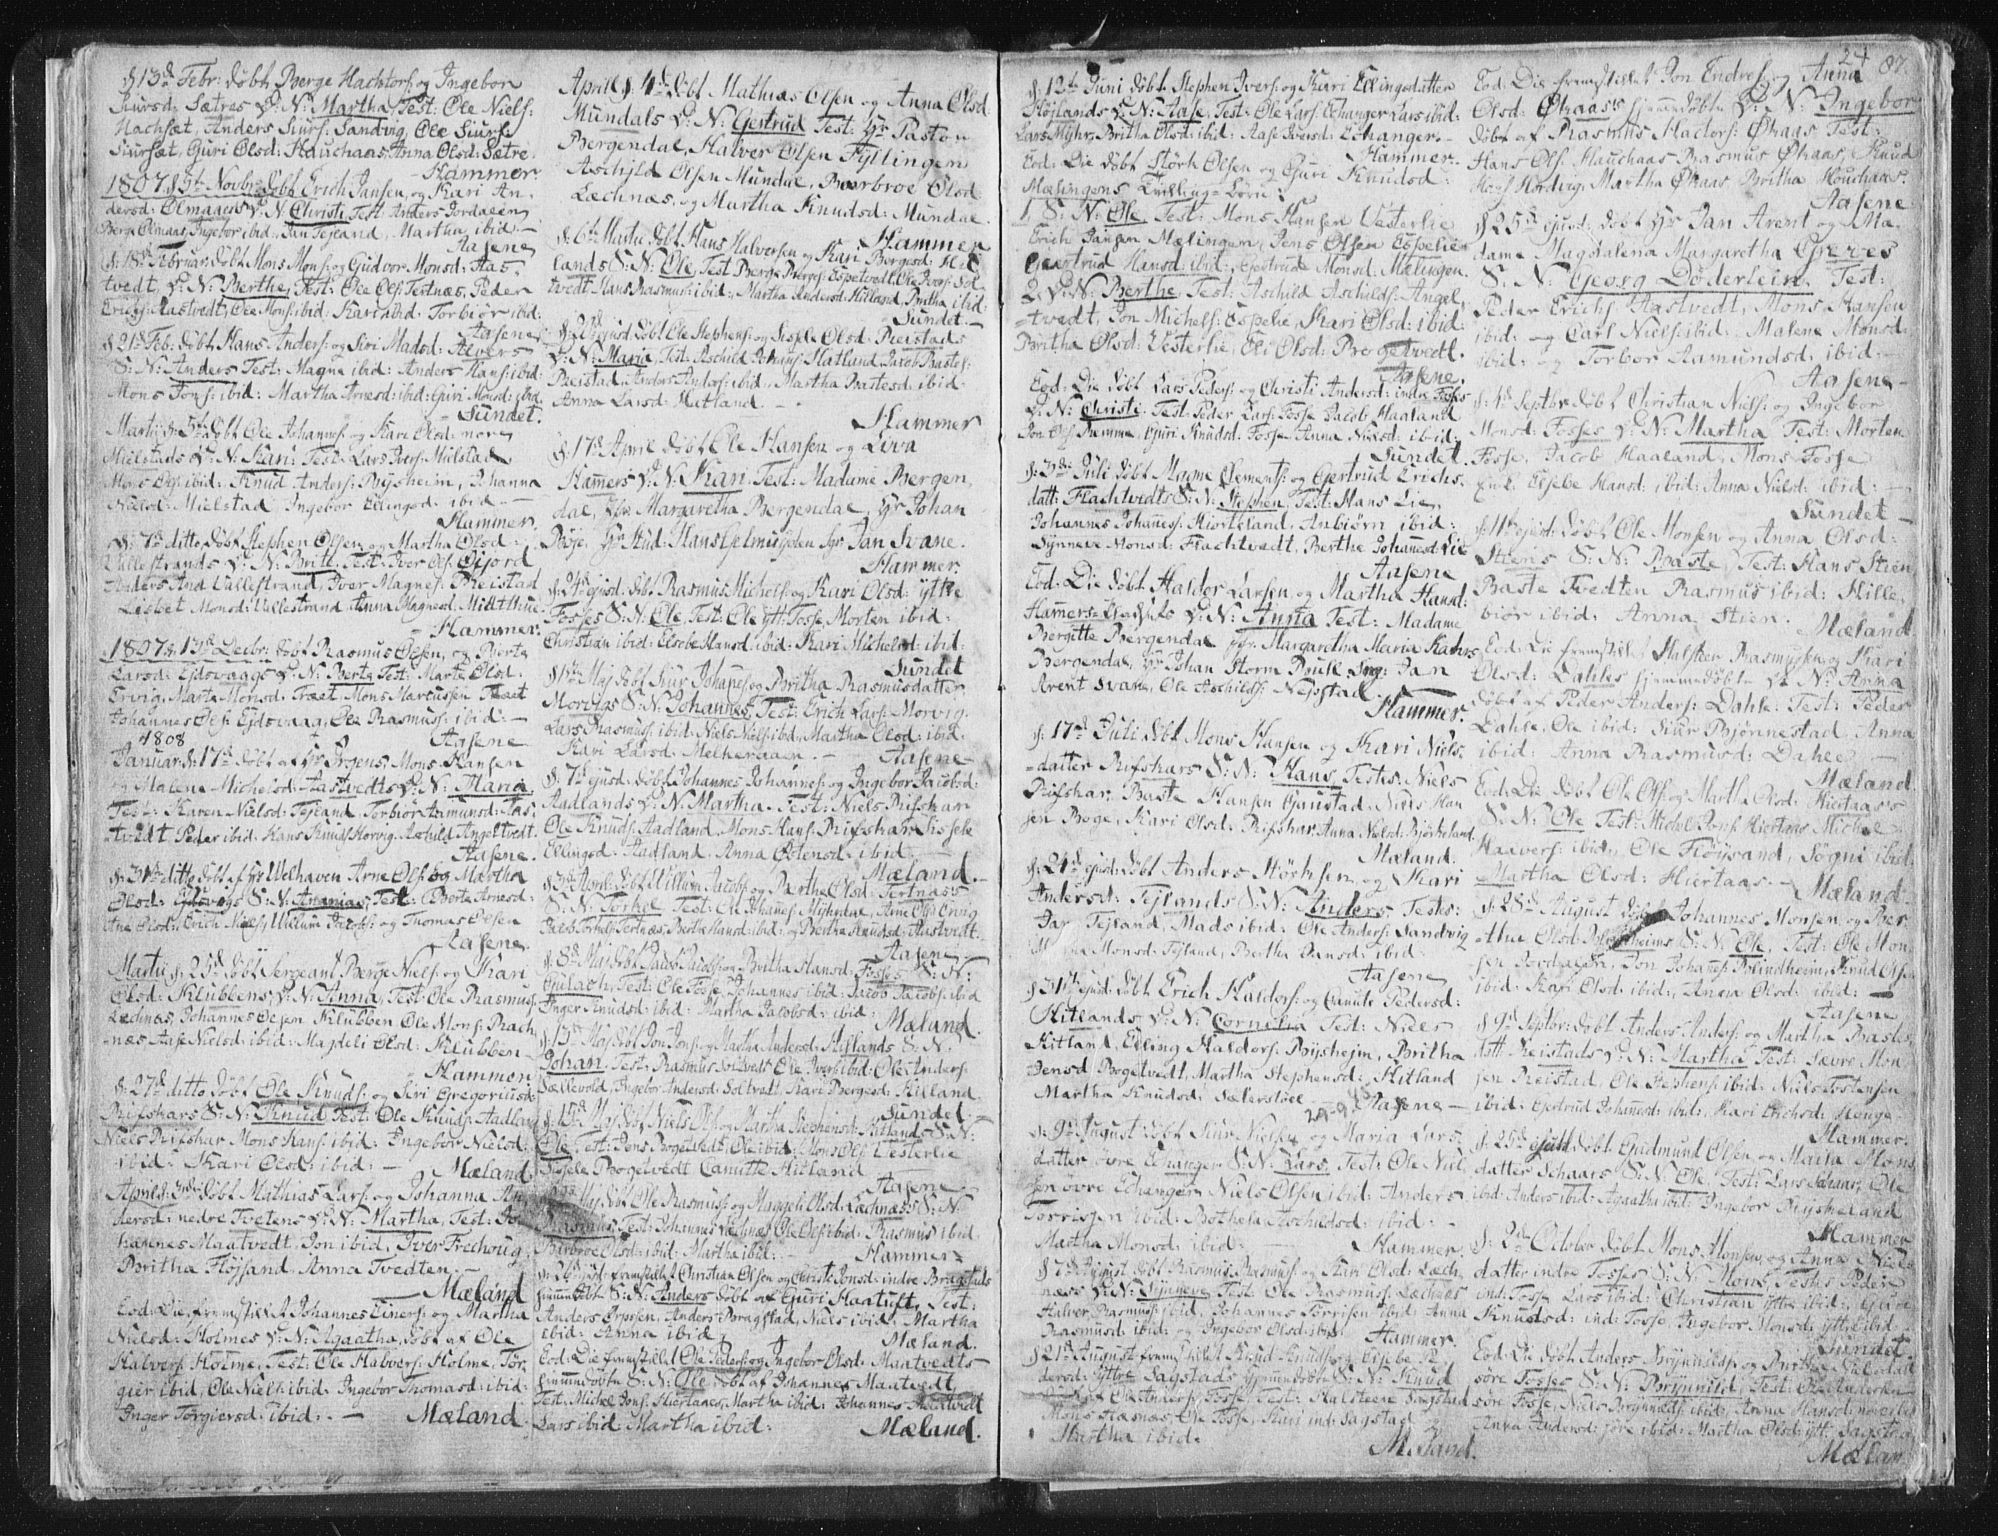 24 87.
d: 13d Febr: døbt Berge Hachtors: og Ingebor
Siursd: Sætres P: N: Martha, Test: Ole Niels:
Hachsæt, Anders Siurs: Sandvig, Ole Siurs:
Siursæt, Guri Olsd: Hauchaas, Anna Olsd: Sætre
Hammer.
1807. d 5t Novbr: døbt Erich Jansen, og Kari An
dersd: Olmaaes P: N: Christi Test: Anders Jordalen
Berge Olmaas, Ingebor ibid: Jan Tejland, Martha ibid:
Aasene
døbt Mons Mons: og Gudvor Monsd: Aas
tvedt, P: N: Berthe, Test: Ole Ols: Tertnæs, Peder
Erichs: Aastvedt, Ole Mons: ibid: Kari ibid: Torbiør ibid:
Aasene
d: 21d Feb: døbt Hans Anders: og Siri Madsd: Alvers
S: N: Anders Test: Magne ibid: Anders Hans: ibid:
Mons Jons: ibid: Martha Arnesd: ibid: Guri Monsd: ibid
Sundet.
Martij d: 5d døbt Ole Johannes: og Kari Olsd: nore
Mielstads P: N: Kari: Test: Lars Ivers: Mielstad
Mons Ols: ibid: Knud Anders: Rysheim, Johanna
Nielsd: Mielstad Ingebor Ellingsd: ibid:
Hammer.
d: 7d ditto døbt Stephen Olsen og Martha Olsd:
Vullestrands P: N: Britt: Test: Iver Ols:
Anders And: Vullestrand, Iver Magnes: Reistad
Lisbet Monsd: Vullestrand Anna Magnesd:
Hammer.
1807. d: 13d Decbr: døbt Rasmus Olsen, og Berta
Larsd: Ejdsvaags P: N: Berte Test: Marte Olsd:
Ervig, Marte Monsd: Træt Mons Marcussen Træet
Johannes Ols: Ejdsvaag, Ole Rasmus: ibid:
1808 Aasene
Januar: d: 17d døbt af Hr Irgens, Mons Hansen
og Malena Michelsd: Aastvedts P: N: Maria,
Test: Karen Nielsd: Tejland, Torbiør Aamunds: Aas
tvedt Peder ibid: Hans Knuds: Horvig, Aschild Angeltvedt.
Aasene.
d: 31d ditto døbt af Hr Welhaven Arne Ols: og Martha
Olsd: Ejdsvigs S: N: Ananias, Test: Berta Arnesd:
Ane Olsd: Erich Niels: Willum Jacobs: og Thomas Olsen
Aasene.
Martij d: 25d døbt Sergeant Berge Niels: og Kari
Olsd: Klubbens P: N: Anna, Test: Ole Rasmus:
Lechnæs, Johannes Olsen Klubben Ole Mons: Rach
næs Aase Nielsd: ibid: Magdeli Olsd: Klubben
Hammer.
d: 27d ditto døbt Ole Knuds: og Siri Gregoriusd:
Rifskars S: N: Knud Test: Ole Knuds: Aadland
Niels Rifskar Mons Hans: ibid: Ingebor Nielsd:
ibid: Kari Olsd: ibid:
Mæland
April d: 3d døbt Mathias Lars: og Johanna An
dersd: nedre Tvetens P: N: Martha, Test: Jo
hannes Maatvedt, Jon ibid, Iver
Britha Anna Tvedten.
Mæland
Eod: Die fremstillet Johannes Einers: og Martha
Nielsd: Holmes P: N: Agaatha, døbt af Ole
Halvers: Holme, Test: Ole Halvers: Holme, Tør
gier ibid, Ole Niels: ibid: Ingebor Thomasd: ibid:
Inger Tørgiersd: ibid:
Mæland.
April d: 4d døbt Mathias Olsen og Anna Olsd
Mundals P: N: Gertrud Test: Hr Pastor
Bergendal, Halver Olsen Fyllingen
Aschild Olsen Mundal, Barbroe Olsd:
Lechnæs, og Martha Knudsd: Mundal.
Hammer
d: 6d Martij døbt Hans Halversen og Kari Bergesd: Hit
lands S: N: Ole Test Berge Berges: Espetvedt, Ole Ivers: Sol
tvedt Hans Rasmus: ibid:, Martha Andersd: Hitland, Britha ibid:
Sundet.
d: 27d ejusd: døbt Ole Stephens: og Sissele Olsd: Reistads
P: N: Maria, Test: Aschild Johans: Hatland, Jacob Bastes:
Reistad, Anders Anders: ibid: Martha Bastesd: ibid:
Anna Larsd: Hatland.
Hammer
d: 17d April døbt Ole Hansen og Liva
Hamers P: N: Kari Test: Madame Bergen
dal, Margaretha Bergendal, Hr Johan
Bøje, Hr Stud: Hans Jan Svane.
Hammer.
d: 24d ejusd: døbt Rasmus Michels: og Kari Olsd: ytte
Fosses S: N: Ole Test: Ole ytt: Fosse, Morten ibid:
Christian ibid: Elsebe Hansd: ibid: Kari Michelsd: ibid:
Sundet
d: 1d Maj døbt Siur Johanes: og Britha Rasmusdatter
Morvigs S: N: Johannes, Test: Erich Lars: Morvig.
Lars Rasmus: ibid: Niels Niels: ibid, Martha Olsd: ibid:
Kari Larsd: Melkeraaen.
Aasene
d: 7d ejusd: døbt Johannes Johannes: og Ingebor Jacobsd:
Aadlands P: N: Martha. Test: Niels Rifskar
Ole Knuds: Aadland, Mons Hans: Rifskar Sissele
Ellingsd: Aadland. Anna Ostensd: ibid:
Mæland.
April: døbt Willum Jacobs: og Barthe Olsd: Tertnæss
S: N: Torkel Test: Ole Johanes: Mykedal, Arne Ols: Ervig
Jacob Torkels: Tertnæs, Berthe Hansd: ibid: og Berthe Knudsd: Aastvedt.
Aasene
d: 8d Maj døbt Jacob Jacobs: og Britha Hansd: Fosses S: N:
Test: Ole Fosse, Johannes ibid: Jacob Jacobs: ibid
Inger Knudsd: ibid: Martha Jacobsd: ibid:
Mæland.
d: 15d Maj døbt Jon Jons: og Martha Andersd: Hitlands S: N:
Johan, Test: Rasmus Soltvedt Ole Ivers: ibid: Ole Anders:
Sællevold, Ingebor Andersd: Soltvedt Kari Bergesd: Hitland.
Sundet.
d: 15d Maj døbt Niels Ols: og Martha Stephensd: Hitlands S: N:
Ole, Test: Jens Bogetvedt, Ole ibid: Mons Ols: Vesterlie
Sissele Borgetvedt Canutte Hitland
Aasene
Maj døbt Ole Rasmus: og Maggeli Olsd: Lechnæss S: N:
Rasmus, Test: Johannes Lechnæs Ole Ols: ibid: Rasmus ibid
Barbroe Olsd: ibid: Martha ibid:
Hammer
d: 26d ejusd: fremstillet Christian Olsen og Christi Jonsd: indre Bragstads
hiemmedøbt S: N: Anders døbt af Guri Haatuft, Test:
Anders Anders Bragstad, Niels ibid: Martha
ibid: Anna ibid:
Mæland.
Eod: Die fremstillet Ole Peders: og Ingebor Olsd: Maatvedts
hiemmedøbt S: N: Ole døbt af Johannes Maatvedt
Test: Michel Jons: Hiertaaes, Martha ibid: Johannes Maatvedt
Lars ibid: Martha ibid:
Mæland.
d: 12d Juni døbt Stephen Ivers: og Kari Ellingsdatter
Højlands P: N: Aase, Test: Ole Lars: Echanger Lars ibid:
Lars Myhr, Britha Olsd: ibid: Aase Siursd: Echanger.
Hammer.
Eod: Die døbt Størk Olsen og Guri Knudsd:
Mælingens Tvilling-Børn:
1. S: N: Ole, Test: Mons Hansen Vesterlie
Erich Jansen Mælingen, Jens Olsen Espelie
Giertrud Hansd: ibid:, Giertrude Monsd: Mælingen.
2. P: N: Berthe, Test: Aschild Aschilds: Angel
tvedt, Jon Michels: Espelie, Kari Olsd: ibid:
Britha Olsd: Vesterlie, Eli Olsd: Borgetvedt.
Aasene.
Eod: Die døbt Lars Peders: og Christi Andersd: indre Fosses
P: N: Christi, Test: Peder Lars: Fosse Jacob Haaland
Jon Ols: Guri Knudsd: Fosse Anna Nielsd: ibid:
Sundet.
d: 3d Juli døbt Magne Clements: og Giertrud Erichs
datt: Flachtvedts S: N: Stephen, Test: Hans Lie,
Johannes Johanes: Hiortland, Anbiørn ibid:
Synneve Monsd: Flachtvedt, Berthe Johanesd: Lie
Aasene
Eod: Die døbt Haldor Larsen, og Martha Hansd:
P: N: Anna Test: Madame
Bergitte Bergendal Margaretha Maria
Bergendal, Hr Johan Storm Jan
Arent Svane, Ole Aschilds: Nejstad
Hammer.
d: 17d Juli døbt Mons Hansen og Kari Niels
datter Rifskars S: N: Hans, Testes: Niels
Rifskar, Baste Hansen Gaustad, Niels Han
sen Boge, Kari Olsd: Rifskar, Anna Nielsd: Biørkeland
Mæland.
d: 24d ejusd: døbt Anders Størksen, og Kari
Andersd: Tejlands S: N: Anders. Testes:
Jan Tejland, Mads ibid: Ole Anders: Sandvig
Monsd: Tejland, Bertha Jansd: ibid:
Aasene
d: 31d ejusd: døbt Erich Haldors: og Canute Pedersd:
Hitlands P: N: Cornelia Test: Niels
Hitland, Elling Haldors: Rysheim, Britha
Jensd Bogetvedt, Martha Stephensd: Hitland
Martha Knudsd: Sælerstøel.
Aasene
d: 9d August døbt Siur Nielsen og Maria Lars
datter øvre Echanger S: N: Lars, Test: Ole Niel
sen øvre Echanger Niels Olsen ibid: Anders
Torrisen ibid: Bothela Aschildsd: ibid:
Martha Monsd: ibid:
Hammer.
d: 7d August døbt Rasmus Rasmus: og Kari Olsd: Lech
næss P: N: Synneve Test: Ole Rasmus: Lechnæs
Halver Rasmus: ibid, Johannes Torrisen ibid: Anna
Rasmusd: ibid: og Ingebor Olsd: ibid:
Hammer.
d: 21d August fremstillet Knud Knuds: og Elsebe Pe
dersd: yttre Sagstads hiemmedøbte S: N: Knud
døbt af Ole Anders: Fosse, Test: Halsteen Sagstad
Mons Hæsnæs, Ole Fosse, Kari ind: Sagstad
Martha ibid.
Mæland.
Eod: Die fremstillet Jon Endres: og Anna
Olsd: Øhaass hjemmedøbt P: N: Ingebor
døbt af Rasmus Hactors: Øhaas, Test:
Hans Ols: Hauchaas Rasmus Øhaas, Knud
Hordvig, Martha Øhaas Britha Houchaas.
Aasene
d: 25d ejusd: døbt Hr Jan Arent og Ma
dame Magdalena Margaretha Greves
S: N: Georg Döderlein. Test:
Peder Erichs: Aastvedt, Mons Hansen
ibid: og Carl Niels: ibid: Malene Monsd:
ibid: og Torbør Aamundsd: ibid:
Aasene
d: 4d Septbr: døbt Christian Niels: og Ingebor
Monsd: Fosses P: N: Martha Test: Morten
Fosse, Jacob Haaland, Mons Fosse
Elsebe Hansd: ibid: Anna Nielsd: ibid:
Sundet
d: 11d ejusd: døbt Ole Monsen og Anna Olsd:
Stiens S: N: Baste, Test: Hans Stien
Baste Tvedten Rasmus ibid: Hille
biør ibid: Anna Stien.
Mæland
Eod: Die fremstillet Halsteen Rasmusen og Kari
Olsd: Dahles hjemmedøbte P: N: Anna
døbt af Peder Anders: Dahle: Test: Peder
Dahle, Ole ibid: Siur Biørnestad, Anna
ibid: Anna Rasmusd: Dahle
Mæland
Eod: Die døbt Ole Ols: og Martha Olsd: Hiertaass
S: N: Ole Test: Michel Jons: Hiertaas Michel
Haavers: ibid:, Ole Fløysand, Søgni ibid:
Martha Olsd: Hiertaas
Mæland
d: 28d August døbt Johannes Monsen og Ber
tha Olsd: Blindheims S: N: Ole, Test: Ole Mon
sen Jordalen, Jon Johanes: Blindheim, Knud Olsen
ibid: Kari Olsd: ibid:, Anna Olsd: ibid:
Aasene
d: 9d Septbr: døbt Anders Anders: og Martha Bastes
datt: Reistads P: N: Martha Test: Sævre Mon
sen Reistad, Ole Stephens: ibid: Niels Tostensen
ibid: Gjertrud Johannsd: ibid:, Kari Erichsd: Henge
Hammer.
d: 25d ejusd: døbt Gudmund Olsen og Maria Mons
datter Schaars S: N: Ole, Test: Lars Schaar, Ole
ibid: Anders ibid: Agaatha ibid: Ingebor
Hammer
d: 2d October døbt Mons Monsen og Anna Niels
datter indre Fosses S: N: Mons Testes Peder
ind: Fosse Lars ibid: Christian ytte ibid:, Guri
Knudsd: ind: Fosse, Ingebor Monsd: ytt: ibid:
Sundet
Eod: Die døbt Anders Brynnilds: og Brithe
søre Fosses S: N: Brynnild, Test: Ole Andersen
søre Fosse, Niels Brynnilds: ibid: Anna Hansd: nore ibid
Anna Andersd: søre ibid: Martha Olsd: ytt: Sagstad
Mæland